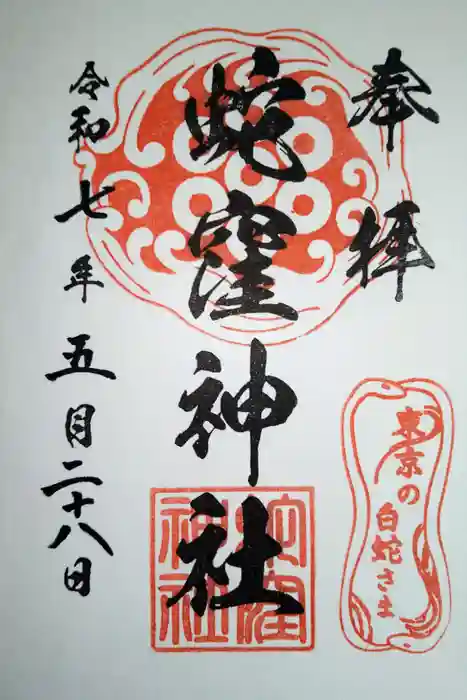 奉拝
蛇窪神社
令和七年五月二十八日
東京の
白蛇さま
蛇窪
神社